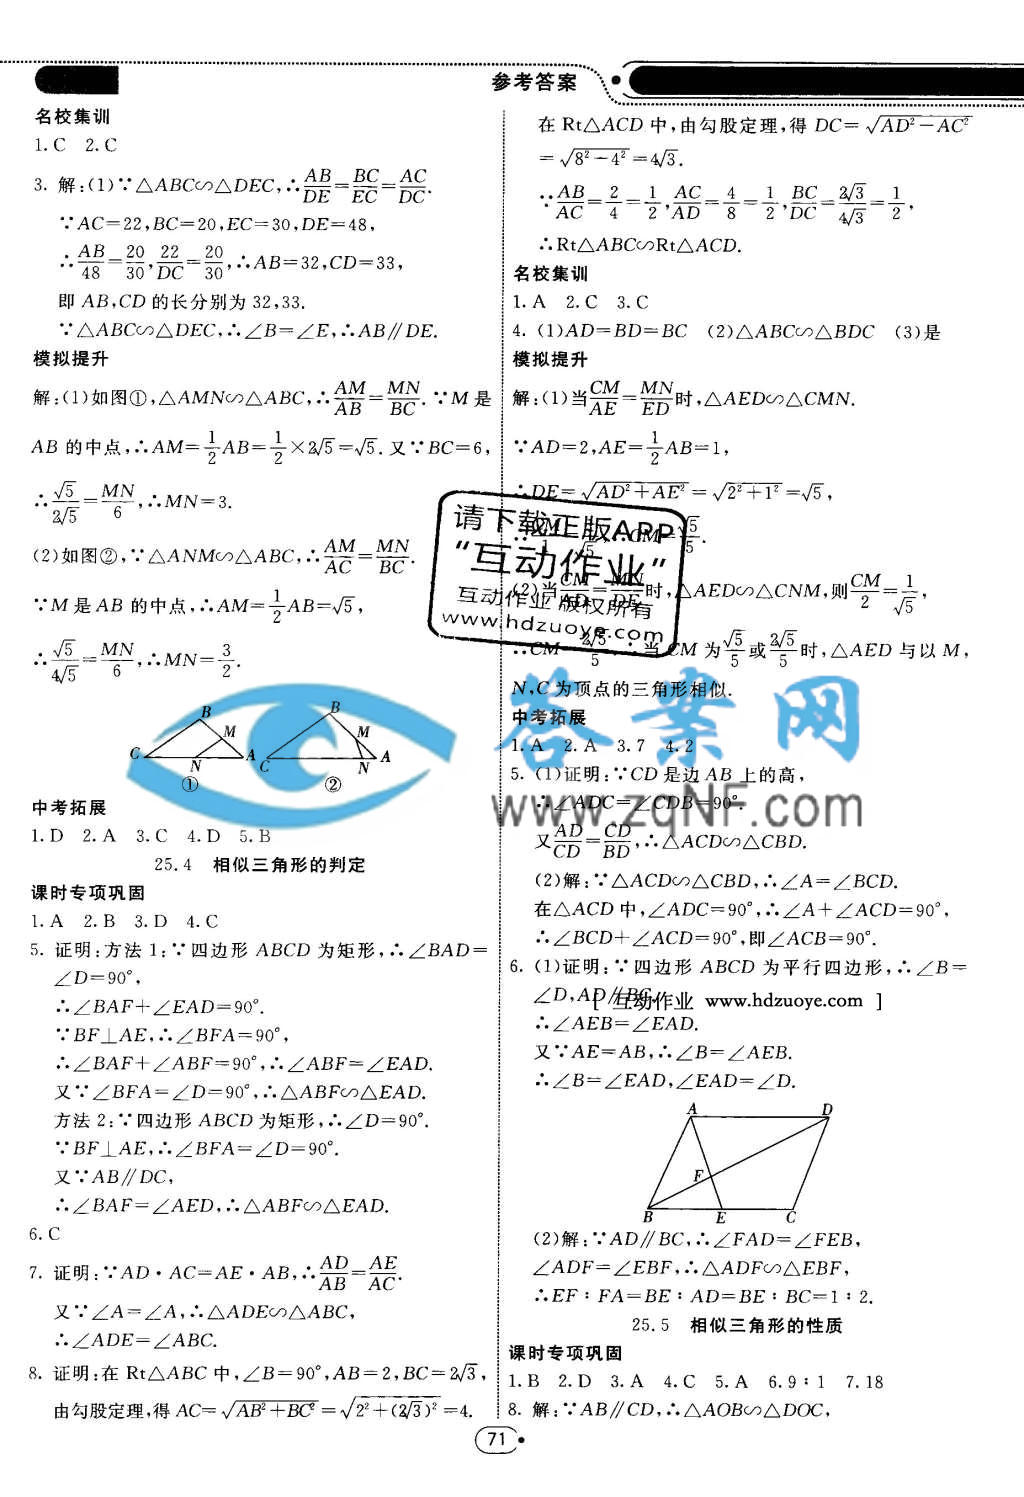 参考答案
名校集训
1. C 2. C
3. 解:(1)∵△ABC∽△DEC,∴AB/DE=BC/EC=AC/DC.
∵AC=22,BC=20,EC=30,DE=48,
∴AB/48=20/30,22/DC=20/30,∴AB=32,CD=33,
即 AB,CD 的长分别为 32,33.
∵△ABC∽△DEC,∴∠B=∠E,∴AB∥DE.
模拟提升
解:(1)如图①,△AMN∽△ABC,∴AM/AB=MN/BC.∵M 是
AB 的中点,∴AM=1/2AB=1/2×2√5=√5.又∵BC=6,
∴√5/2√5=MN/6,∴MN=3.
(2)如图②,∵△ANM∽△ABC,∴AM/AC=MN/BC.
∵M 是 AB 的中点,∴AM=1/2AB=√5,
∴√5/4√5=MN/6,∴MN=3/2.
B M C N A ①
B M C N A ②
中考拓展
1. D 2. A 3. C 4. D 5. B
25.4 相似三角形的判定
课时专项巩固
1. A 2. B 3. D 4. C
5. 证明:方法 1:∵四边形 ABCD 为矩形,∴∠BAD=
∠D=90°,
∴∠BAF+∠EAD=90°.
∵BF⊥AE,∴∠BFA=90°,
∴∠BAF+∠ABF=90°,∴∠ABF=∠EAD.
又∵∠BFA=∠D=90°,∴△ABF∽△EAD.
方法 2:∵四边形 ABCD 为矩形,∴∠D=90°.
∵BF⊥AE,∴∠BFA=∠D=90°.
又∵AB∥DC,
∴∠BAF=∠AED,∴△ABF∽△EAD.
6. C
7. 证明:∵AD·AC=AE·AB,∴AD/AB=AE/AC.
又∵∠A=∠A,∴△ADE∽△ABC,
∴∠ADE=∠ABC.
8. 证明:在 Rt△ABC 中,∠B=90°,AB=2,BC=2√3,
由勾股定理,得 AC=√(AB²+BC²)=√(2²+(2√3)²)=4.
在 Rt△ACD 中,由勾股定理,得 DC=√(AD²-AC²)
=√(8²-4²)=4√3.
∵AB/AC=2/4=1/2,AC/AD=4/8=1/2,BC/DC=2√3/4√3=1/2,
∴Rt△ABC∽Rt△ACD.
名校集训
1. A 2. C 3. C
4. (1)AD=BD=BC (2)△ABC∽△BDC (3)是
模拟提升
解:(1)当CM/AE=MN/ED时,△AED∽△CMN.
∵AD=2,AE=1/2AB=1,
∴DE=√(AD²+AE²)=√(2²+1²)=√5,
CM √5/5.
(2)当CM/AD=MN/DE时,△AED∽△CNM,则CM/2=1/√5,
∴CM=2√5/5.∴当 CM 为√5/5或2√5/5时,△AED 与以 M,
N,C 为顶点的三角形相似.
中考拓展
1. A 2. A 3. 7 4. 2
5. (1)证明:∵CD 是边 AB 上的高,
∴∠ADC=∠CDB=90°.
又AD/CD=CD/BD,∴△ACD∽△CBD.
(2)解:∵△ACD∽△CBD,∴∠A=∠BCD.
在△ACD 中,∠ADC=90°,∴∠A+∠ACD=90°,
∴∠BCD+∠ACD=90°,即∠ACB=90°.
6. (1)证明:∵四边形 ABCD 为平行四边形,∴∠B=
∠D,AD∥BC,
[ 互动作业 www.hdzuoye.com ]
∴∠AEB=∠EAD.
又∵AE=AB,∴∠B=∠AEB.
∴∠B=∠EAD,∠EAD=∠D.
A D
F
B E C
(2)解:∵AD∥BC,∴∠FAD=∠FEB,
∠ADF=∠EBF,∴△ADF∽△EBF,
∴EF∶FA=BE∶AD=BE∶BC=1∶2.
25.5 相似三角形的性质
课时专项巩固
1. B 2. D 3. A 4. C 5. A 6. 9∶1 7. 18
8. 解:∵AB∥CD,∴△AOB∽△DOC,
71
请下载正版APP
“互动作业”
互动作业 版权所有
www.hdzuoye.com
答案网
www.zqNF.com